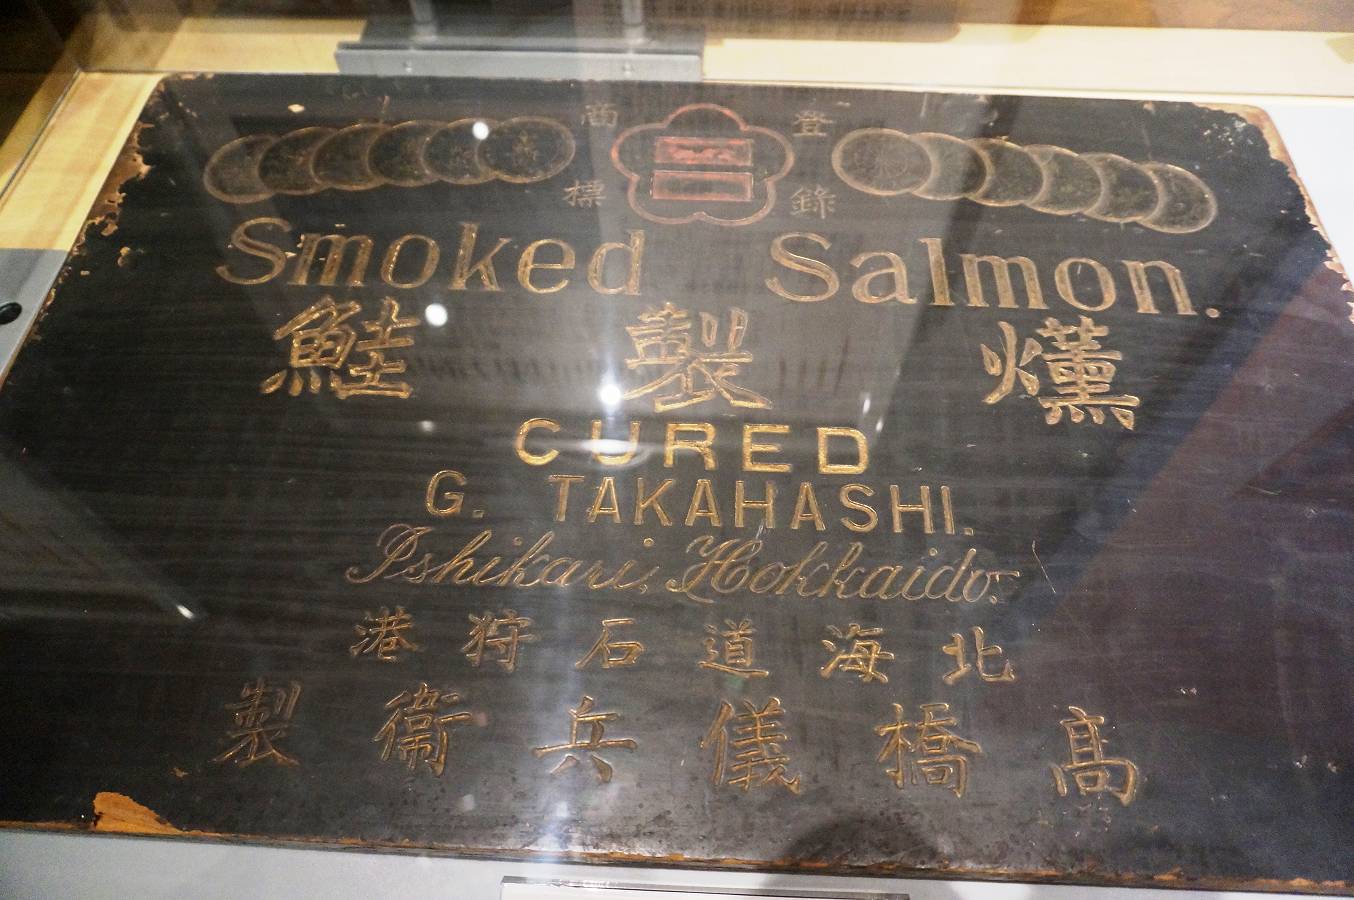 登録
商標
Smoked Salmon.
燻製鮭
CURED
G. TAKAHASHI.
Ishikari, Hokkaido.
北海道石狩港
髙橋儀兵衞製